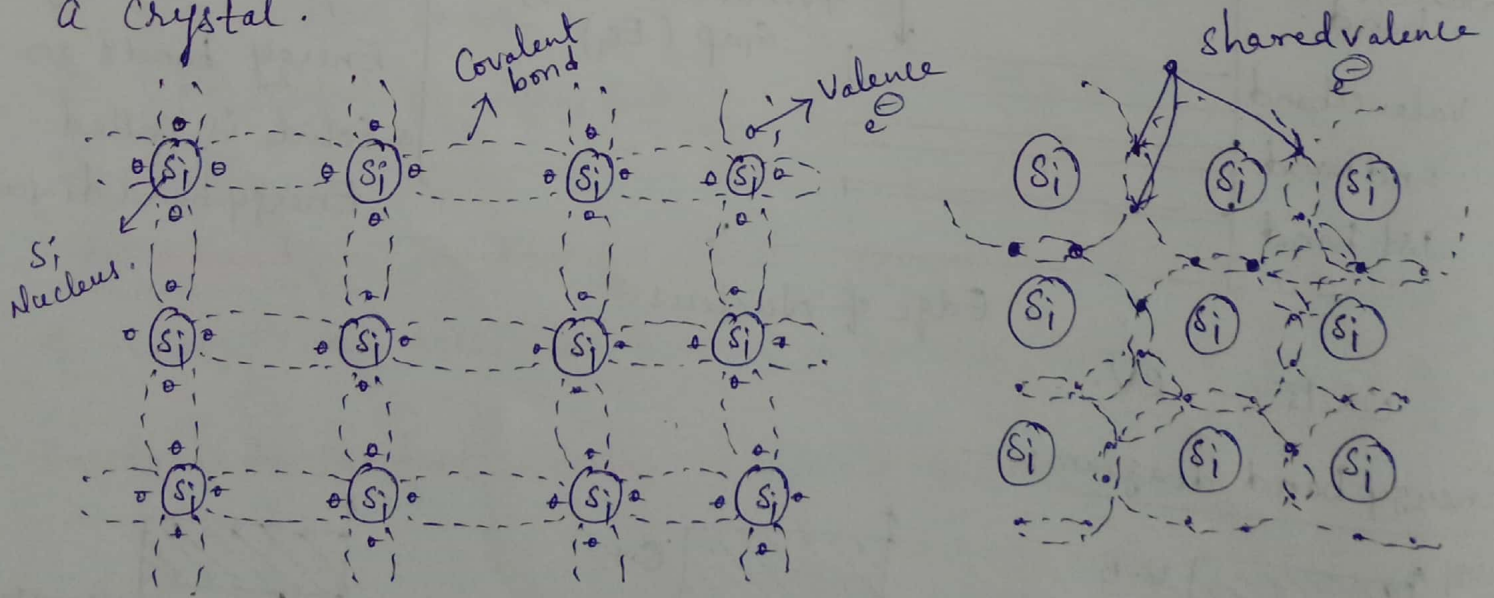 a Crystal.
Covalent
bond
Valence
e⊖
Shared valence
e⊖
Si Si Si Si Si Si Si
Si
Nucleus.
Si Si Si Si Si Si Si
Si Si Si Si Si Si Si